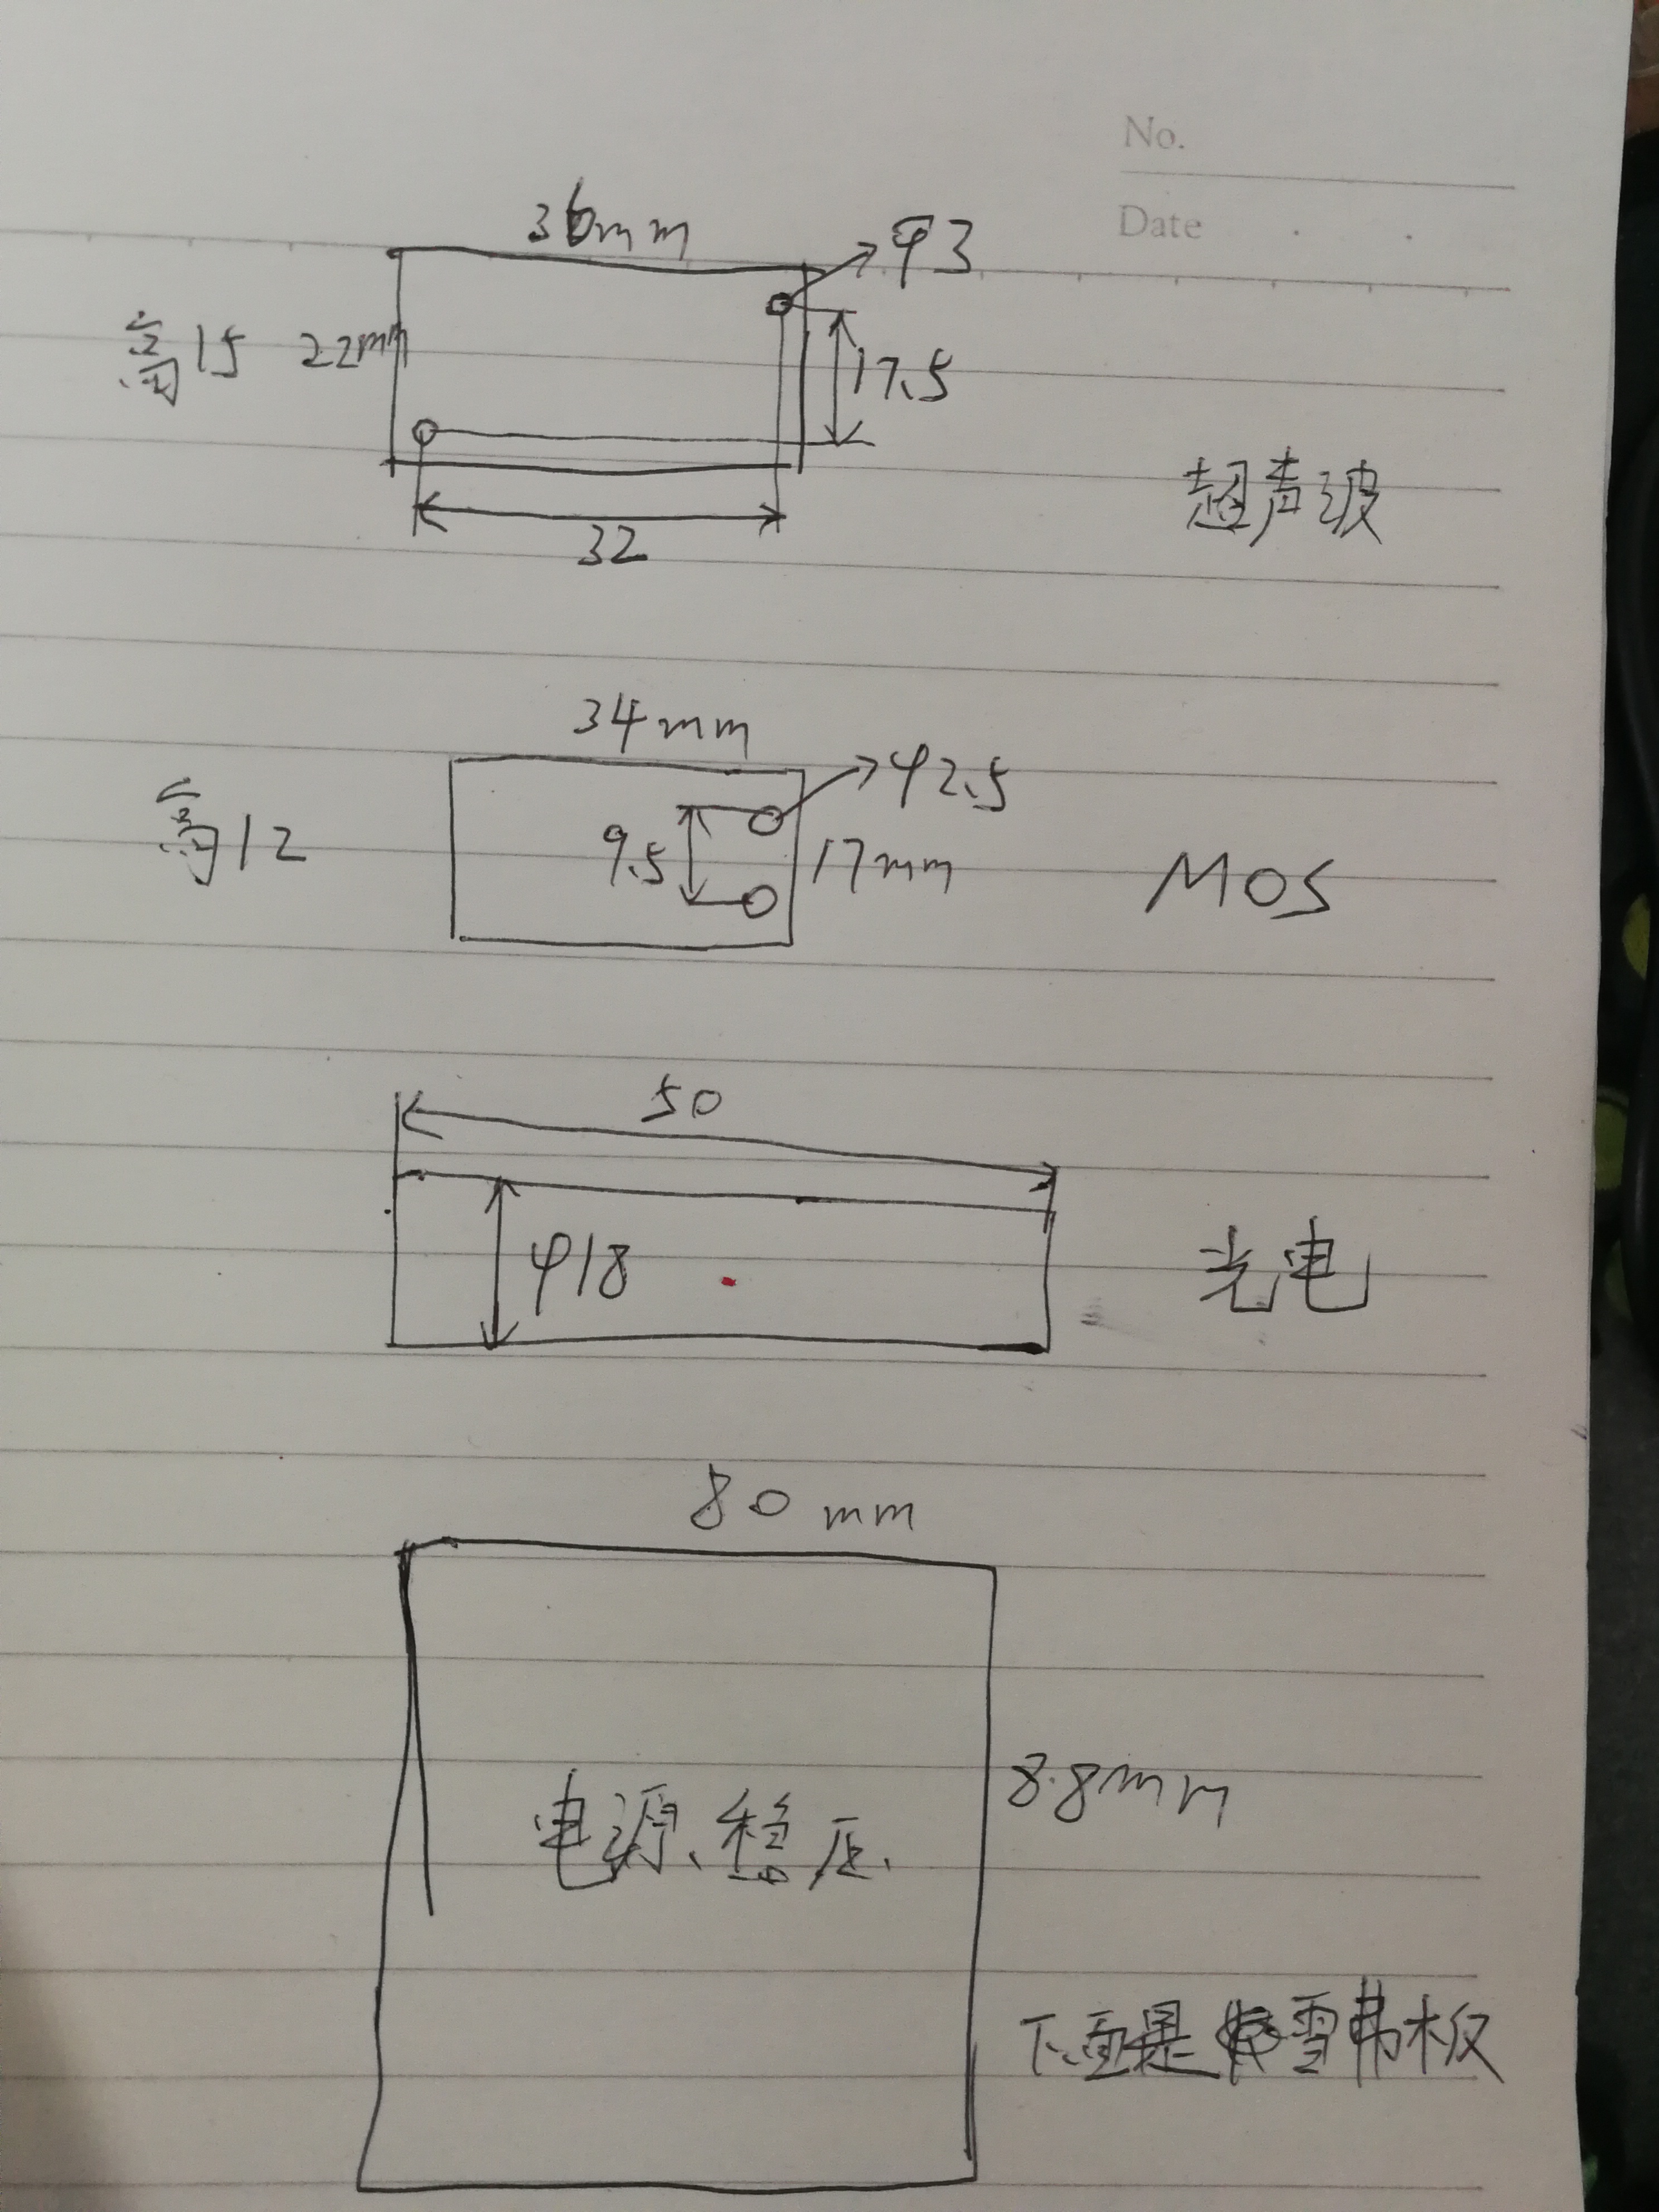 No.
Date
36mm
φ3
高15 22mm
17.5
超声波
32
34mm
φ2.5
高12
9.5
17mm
MOS
50
φ18
光电
80mm
8.8mm
电源、稳压、
下面是雪弗板